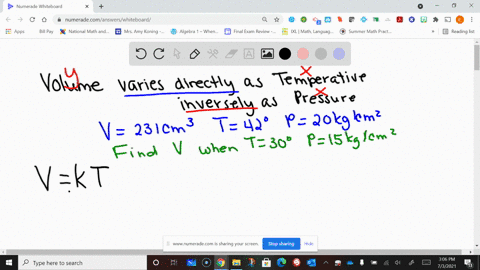 Numerade Whiteboard
numerade.com/answers/whiteboard/
Apps
Bill Pay
National Math and...
Mrs. Amy Koning -...
Algebra 1 – When...
Final Exam Review -...
IXL | Math, Langua...
Summer Math Pract...
Reading list
y
Volume varies directly as Temperative
x
inversely as Pressure
x
V = 231 cm³ T = 42° P = 20 kg/cm²
Find V when T = 30° P = 15 kg/cm²
V = kT
www.numerade.com is sharing your screen.
Stop sharing
Hide
Type here to search
3:06 PM
7/3/2021